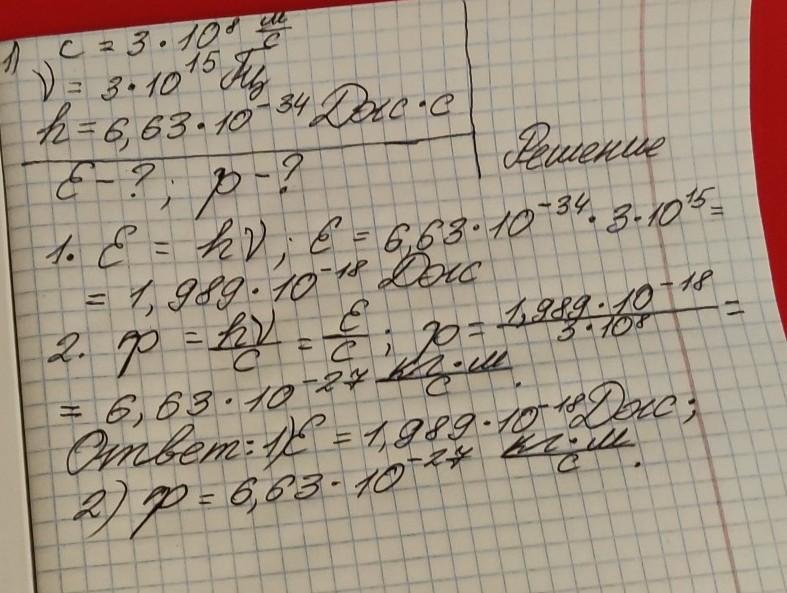 1) c = 3·10⁸ м/с
ν = 3·10¹⁵ Гц
h = 6,63·10⁻³⁴ Дж·с
Решение
Ɛ - ?; p - ?
1. Ɛ = hν; Ɛ = 6,63·10⁻³⁴·3·10¹⁵ =
= 1,989·10⁻¹⁸ Дж
2. p = hν/c = Ɛ/c; p = 1,989·10⁻¹⁸/3·10⁸ =
= 6,63·10⁻²⁷ кг·м/с.
Ответ: 1) Ɛ = 1,989·10⁻¹⁸ Дж;
2) p = 6,63·10⁻²⁷ кг·м/с.